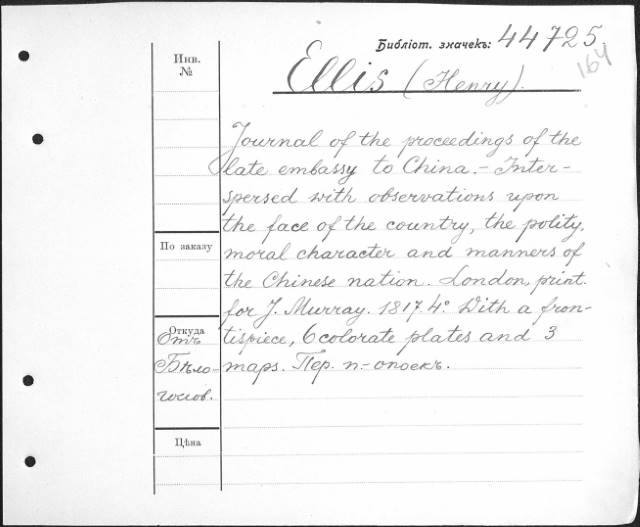 Библіот. значекъ: 44725
164
Инв.
№
Ellis (Henry).
Journal of the proceedings of the
late embassy to China. - Inter-
spersed with observations upon
the face of the country, the polity,
moral character and manners of
the Chinese nation. London, print.
for J. Murray. 1817. 4°. With a fron-
tispiece, 6 colorate plates and 3
maps. Пер. п.-опоекъ.
По заказу
Откуда
Отъ
Бѣло-
Цѣна